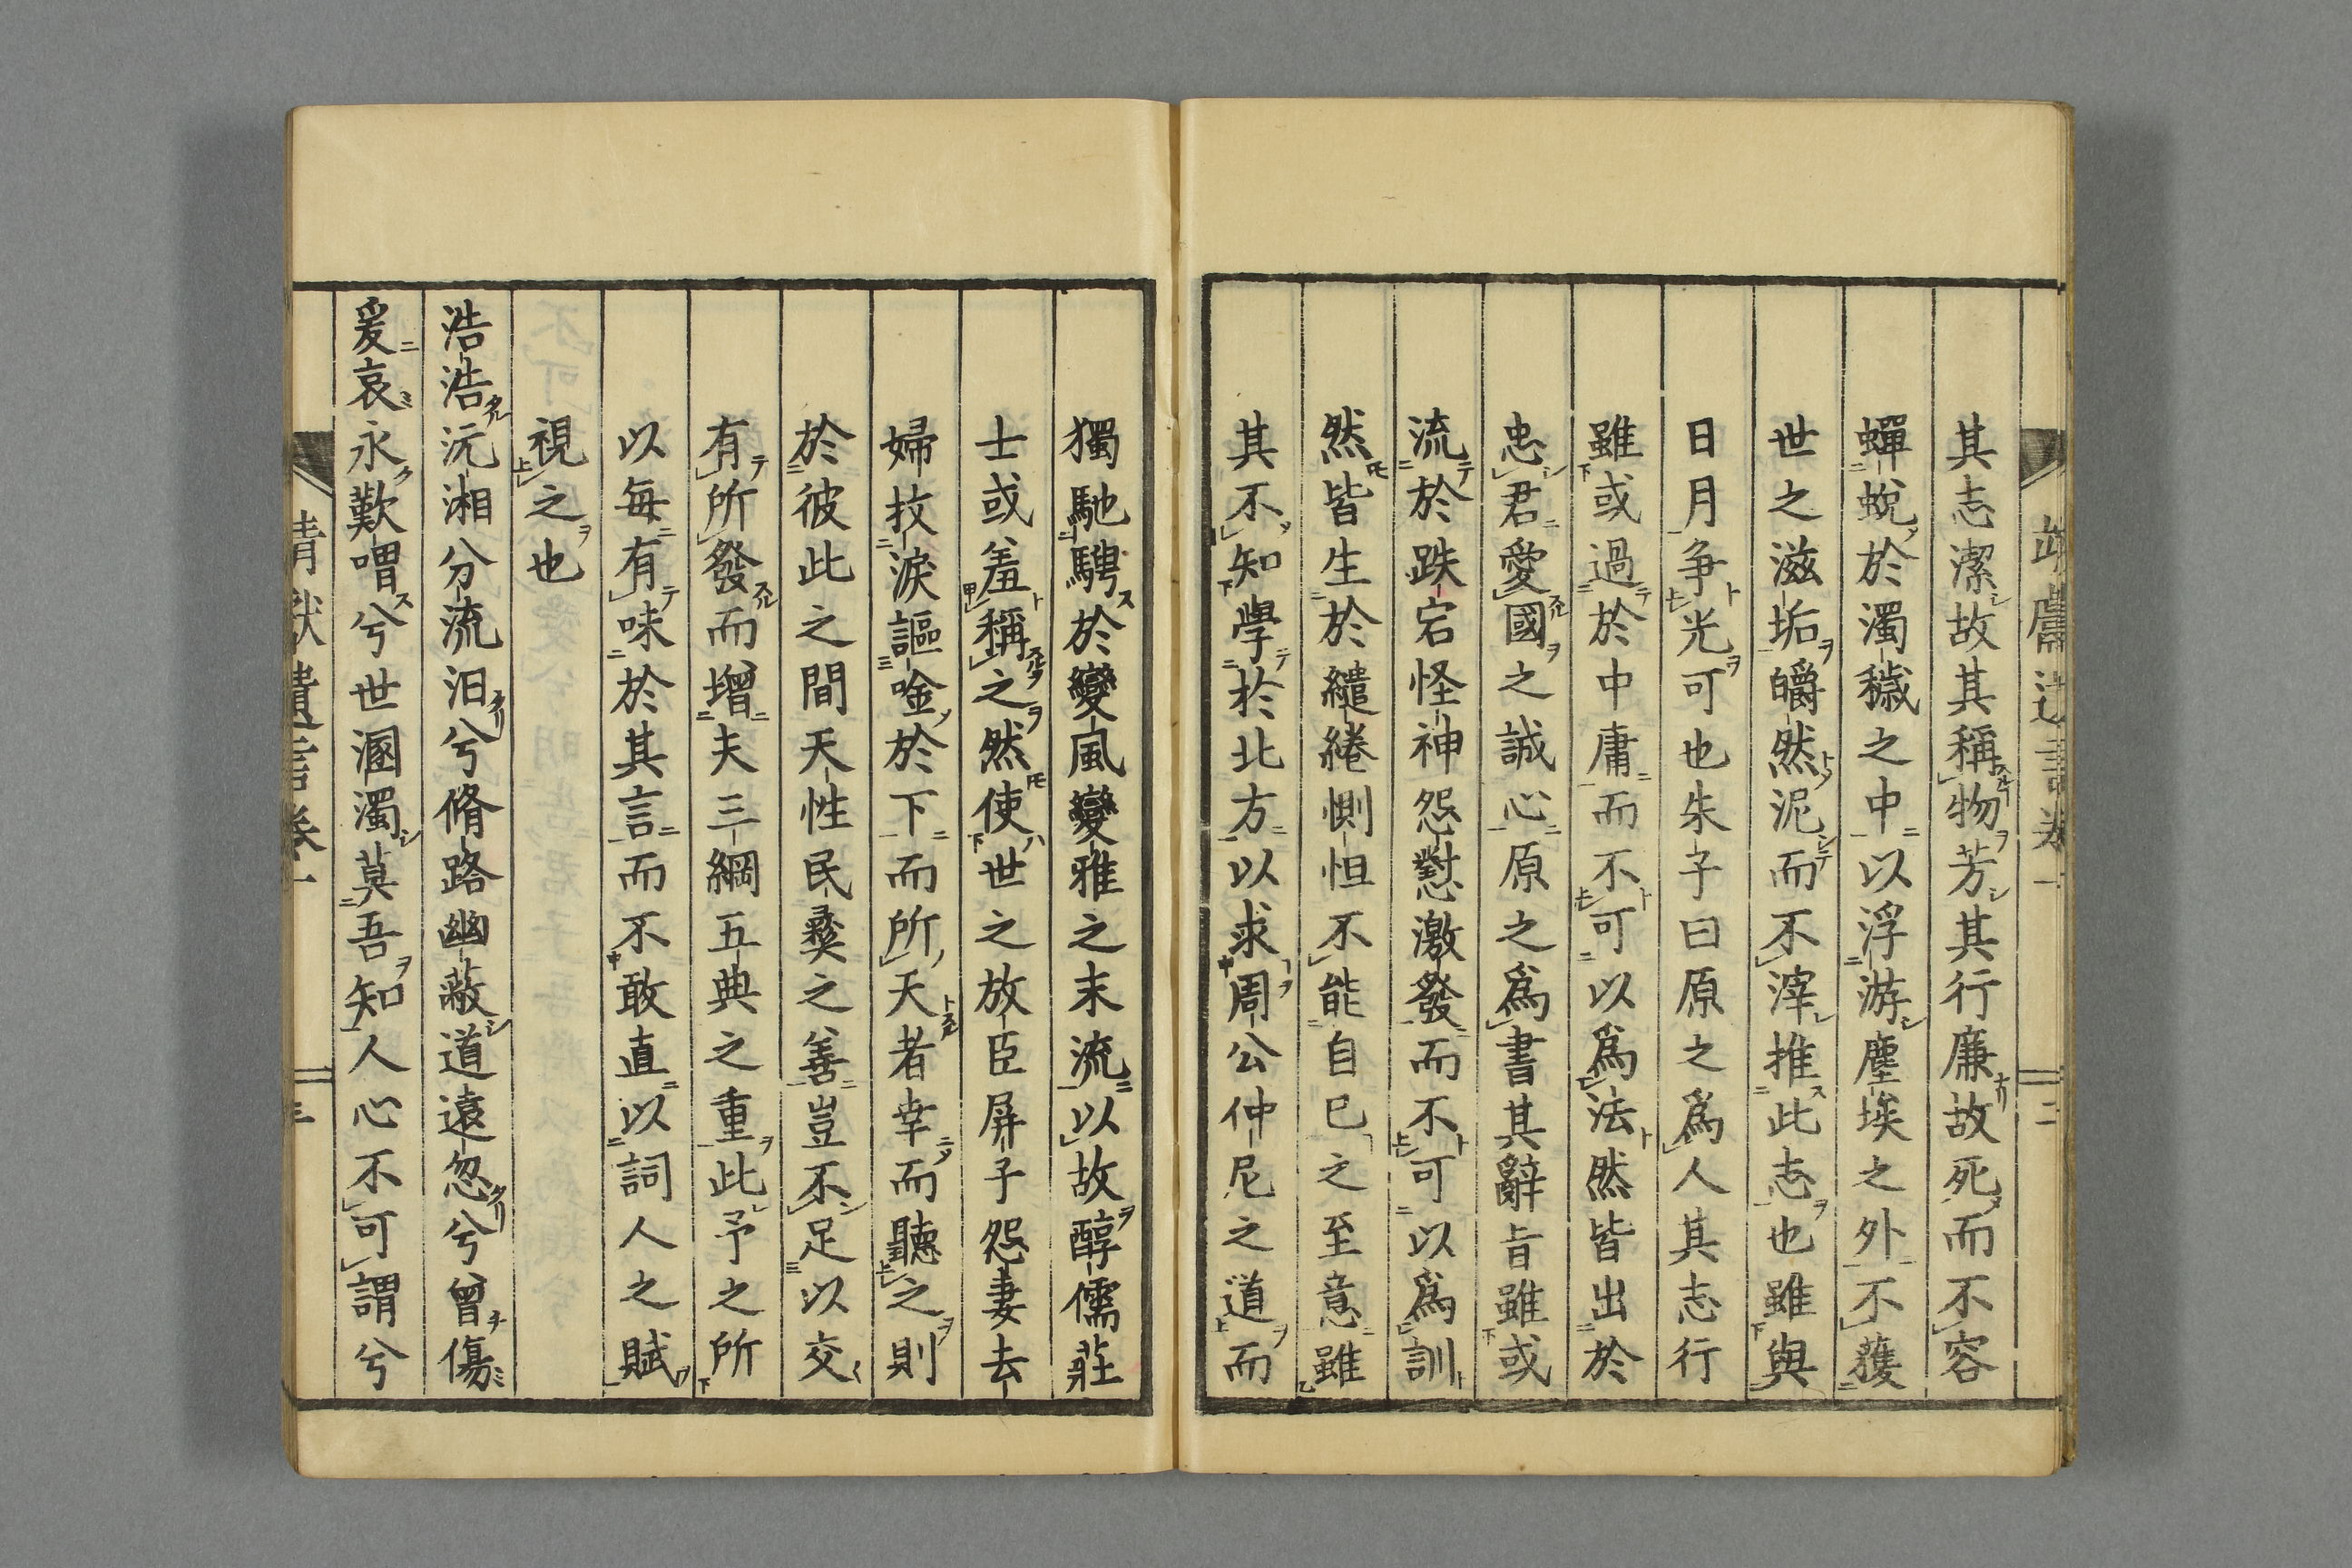 其志潔故其稱物芳其行廉故死而不容
蟬蛻於濁穢之中以浮游塵埃之外不獲
世之滋垢皭然泥而不滓推此志也雖與
日月争光可也朱子曰原之爲人其志行
雖或過於中庸而不可以爲法然皆出於
忠君愛國之誠心原之爲書其辭旨雖或
流於跌宕怪神怨懟激發而不可以爲訓
然皆生於繾綣惻怛不能自已之至意雖
其不知學於北方以求周公仲尼之道而
獨馳騁於變風變雅之末流以故醇儒莊
士或羞稱之然使世之放臣屏子怨妻去
婦抆淚謳唫於下而所天者幸而聽之則
於彼此之間天性民彝之善豈不足以交
有所發而增夫三綱五典之重此予之所
以每有味於其言而不敢直以詞人之賦
視之也
浩浩沅湘分流汨兮脩路幽蔽道遠忽兮曾傷
爰哀永歎喟兮世溷濁莫吾知人心不可謂兮
靖獻遺言卷一
三